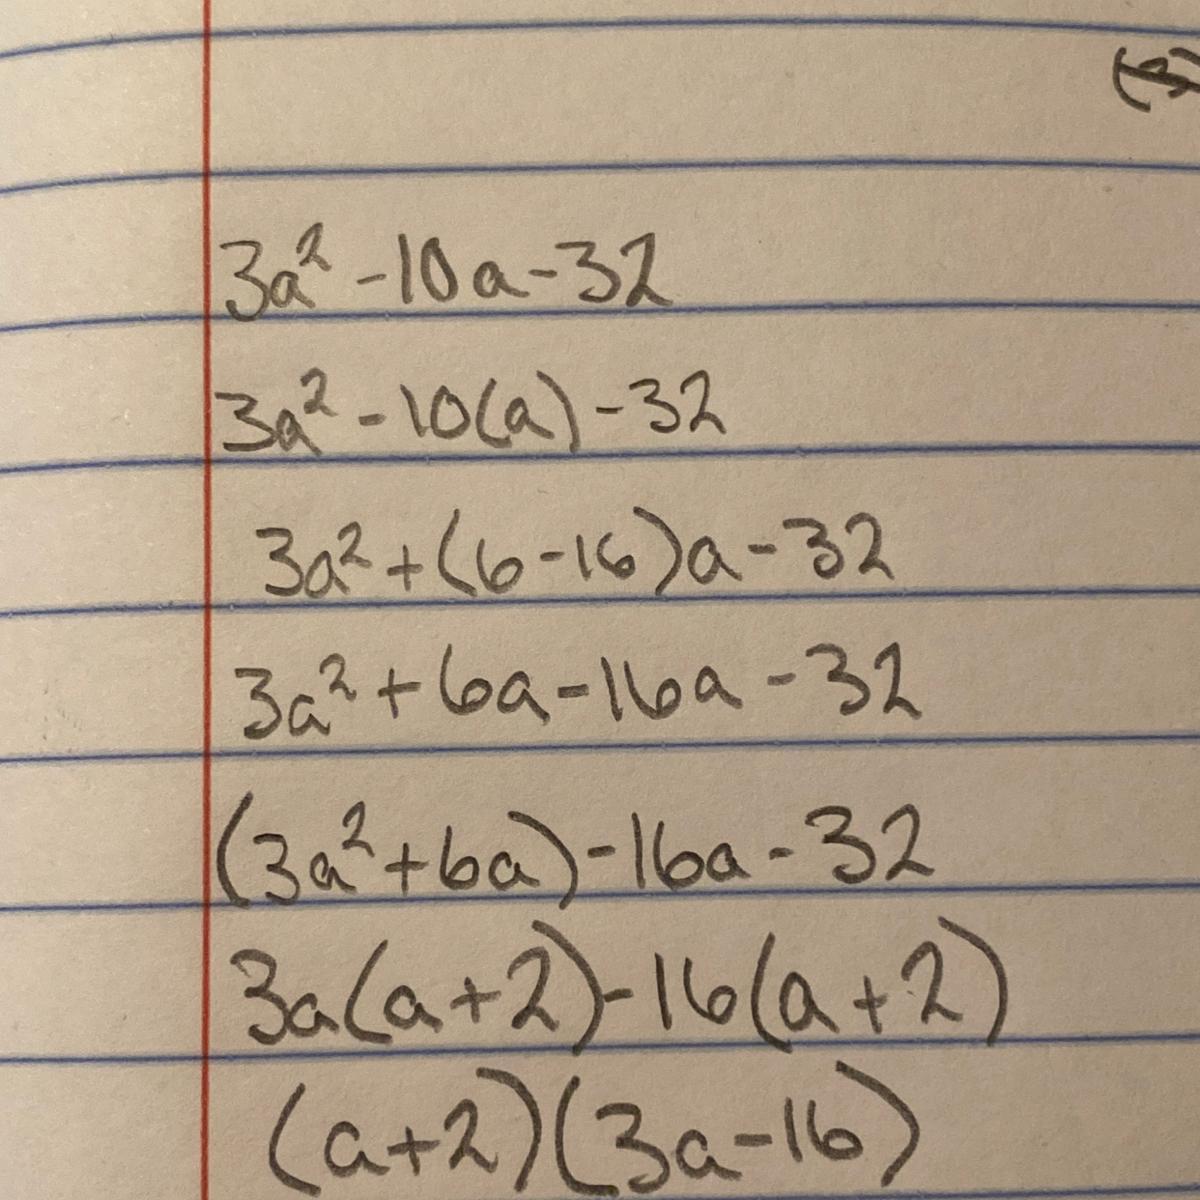 3a² -10a-32
3a² - 10(a) -32
3a² + (6-16)a - 32
3a² + 6a - 16a - 32
(3a² + 6a) - 16a - 32
3a(a+2) - 16(a+2)
(a+2)(3a-16)